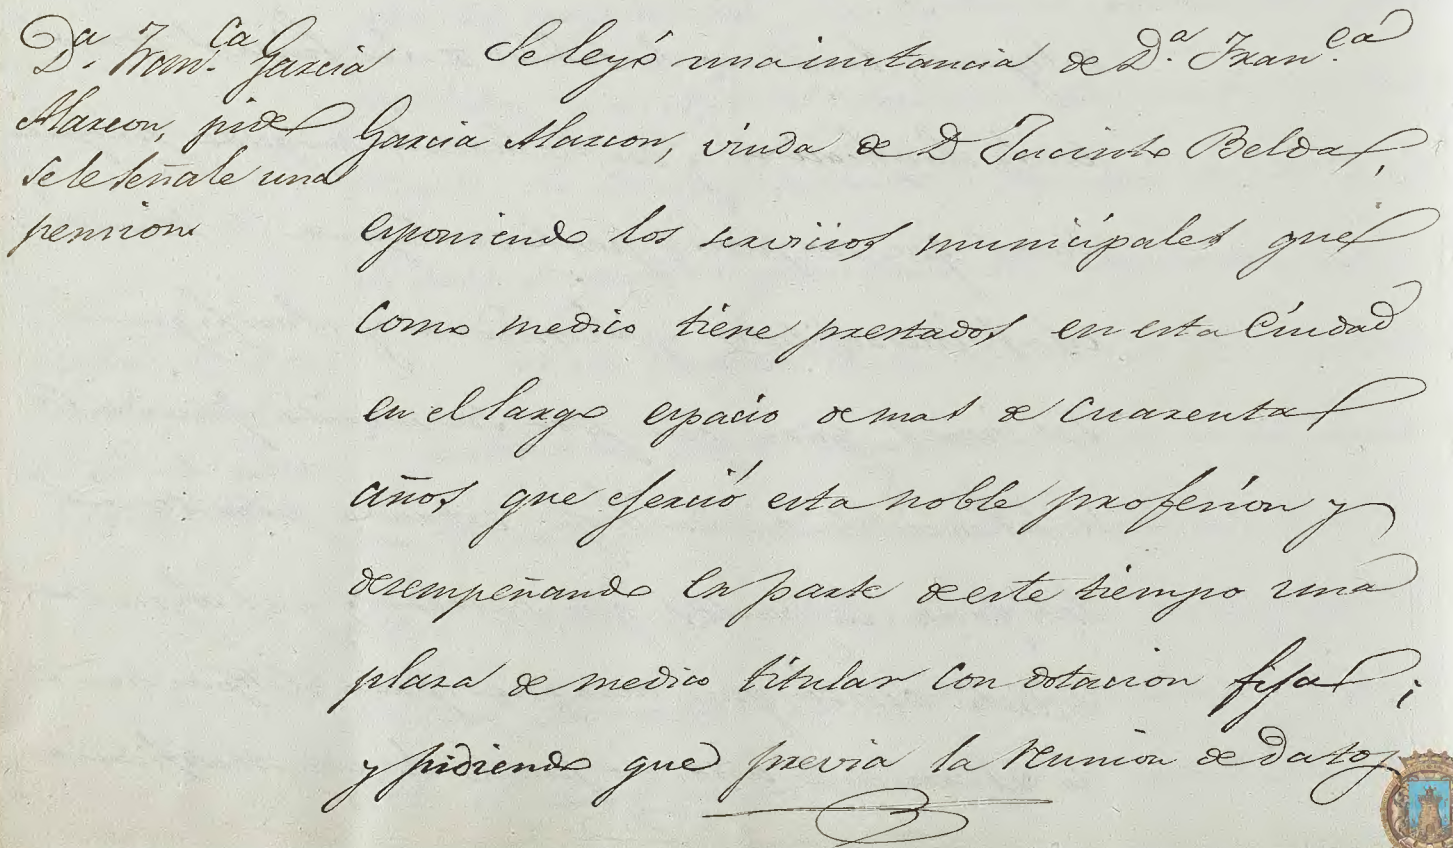 Dª. Franca. Garcia
Alarcon, pide
se le señale una
pension
Se leyó una instancia de Dª. Franca.
Garcia Alarcon, viuda de D Jacinto Belda,
esponiendo los servicios municipales que
como medico tiene prestados en esta Ciudad
en el largo espacio de mas de cuarenta
años que ejerció esta noble profesion y
desempeñando en parte de este tiempo una
plaza de medico titular con dotacion fija;
y pidiendo que previa la reunion de datos